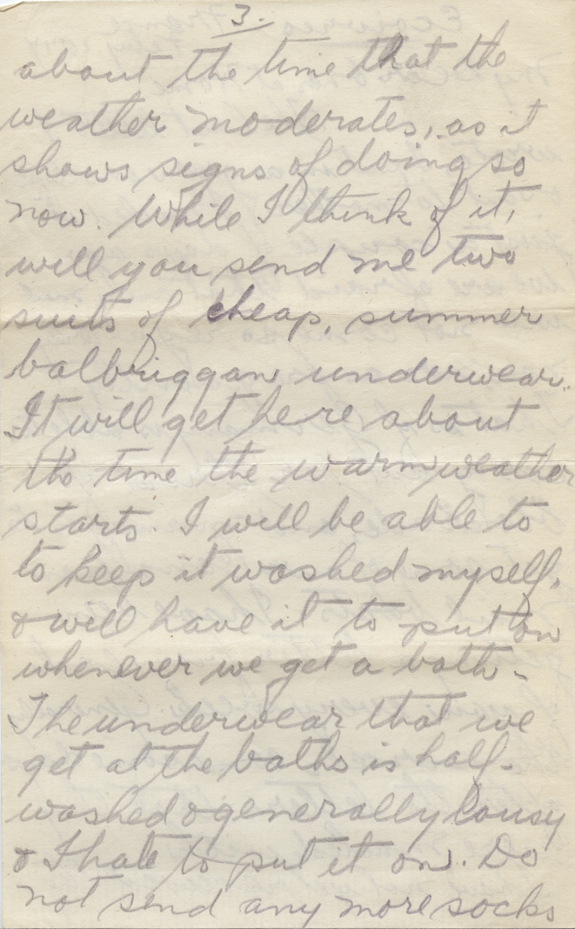 3.
about the time that the
weather moderates, as it
shows signs of doing so
now. While I think of it,
will you send me two
suits of cheap, summer
balbriggan underwear.
It will get here about
the time the warm weather
starts. I will be able to
to keep it washed myself,
& will have it to put on
whenever we get a bath.
The underwear that we
get at the baths is half-
washed & generally lousy
& I hate to put it on. Do
not send any more socks